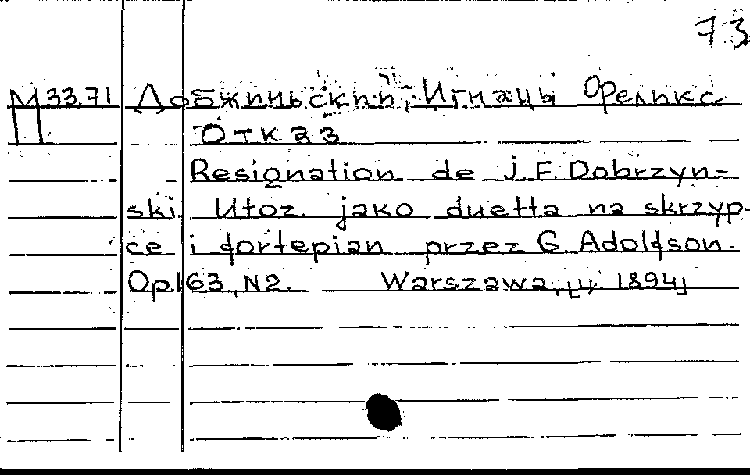 73
М 33.71 Добжиньский, Игнацы Феликс
П Отказ
Resignation de J.F. Dobrzyn-
ski. Utoz. jako duetta na skrzyp-
ce i fortepian przez G. Adolfson.
Op.163, N2. Warszawa, 1894]